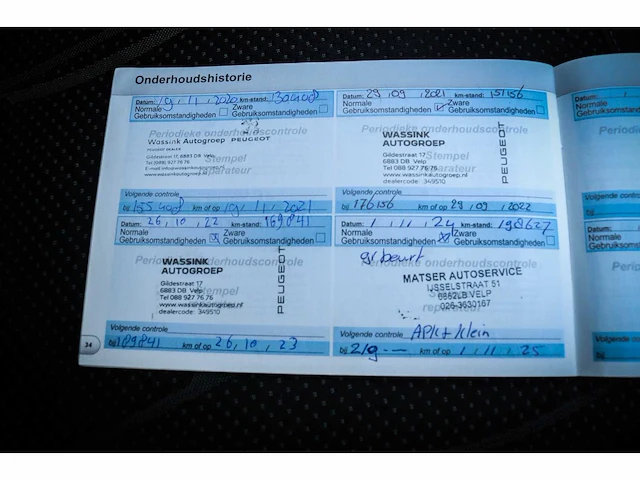 Onderhoudshistorie
Datum: 19, 11, 2020 km-stand:
Normale Zware
Gebruiksomstandigheden Gebruiksomstandigheden
Periodieke onderhoudscontrole
Wassink Autogroep PEUGEOT
Gildestraat 17, 6883 DB Velp
Tel (088) 927 76 76
Stempel
reparateur
Volgende controle
bij km of op 19, 11, 2021
Datum: 29, 09, 2021 km-stand: 151156
Normale Zware
Gebruiksomstandigheden Gebruiksomstandigheden
Periodieke onderhoudscontrole
WASSINK
AUTOGROEP
PEUGEOT
Gildestraat 17
6883 DB Velp
Tel 088 927 76 76
www.wassinkautogroep.nl
dealercode: 349510
Volgende controle
bij 176156 km of op 29, 09, 2022
Datum: 26, 10, 22 km-stand: 169841
Normale Zware
Gebruiksomstandigheden Gebruiksomstandigheden
Periodieke onderhoudscontrole
WASSINK
AUTOGROEP
PEUGEOT
Gildestraat 17
6883 DB Velp
Tel 088 927 76 76
www.wassinkautogroep.nl
dealercode: 349510
Volgende controle
bij 189841 km of op 26, 10, 23
Datum: 1, 11, 24 km-stand: 198627
Normale Zware
Gebruiksomstandigheden Gebruiksomstandigheden
gr beurt
MATSER AUTOSERVICE
IJSSELSTRAAT 51
6882LB VELP
026-3630167
Volgende controle APK + klein
bij 219--- km of op 1, 11, 25
34